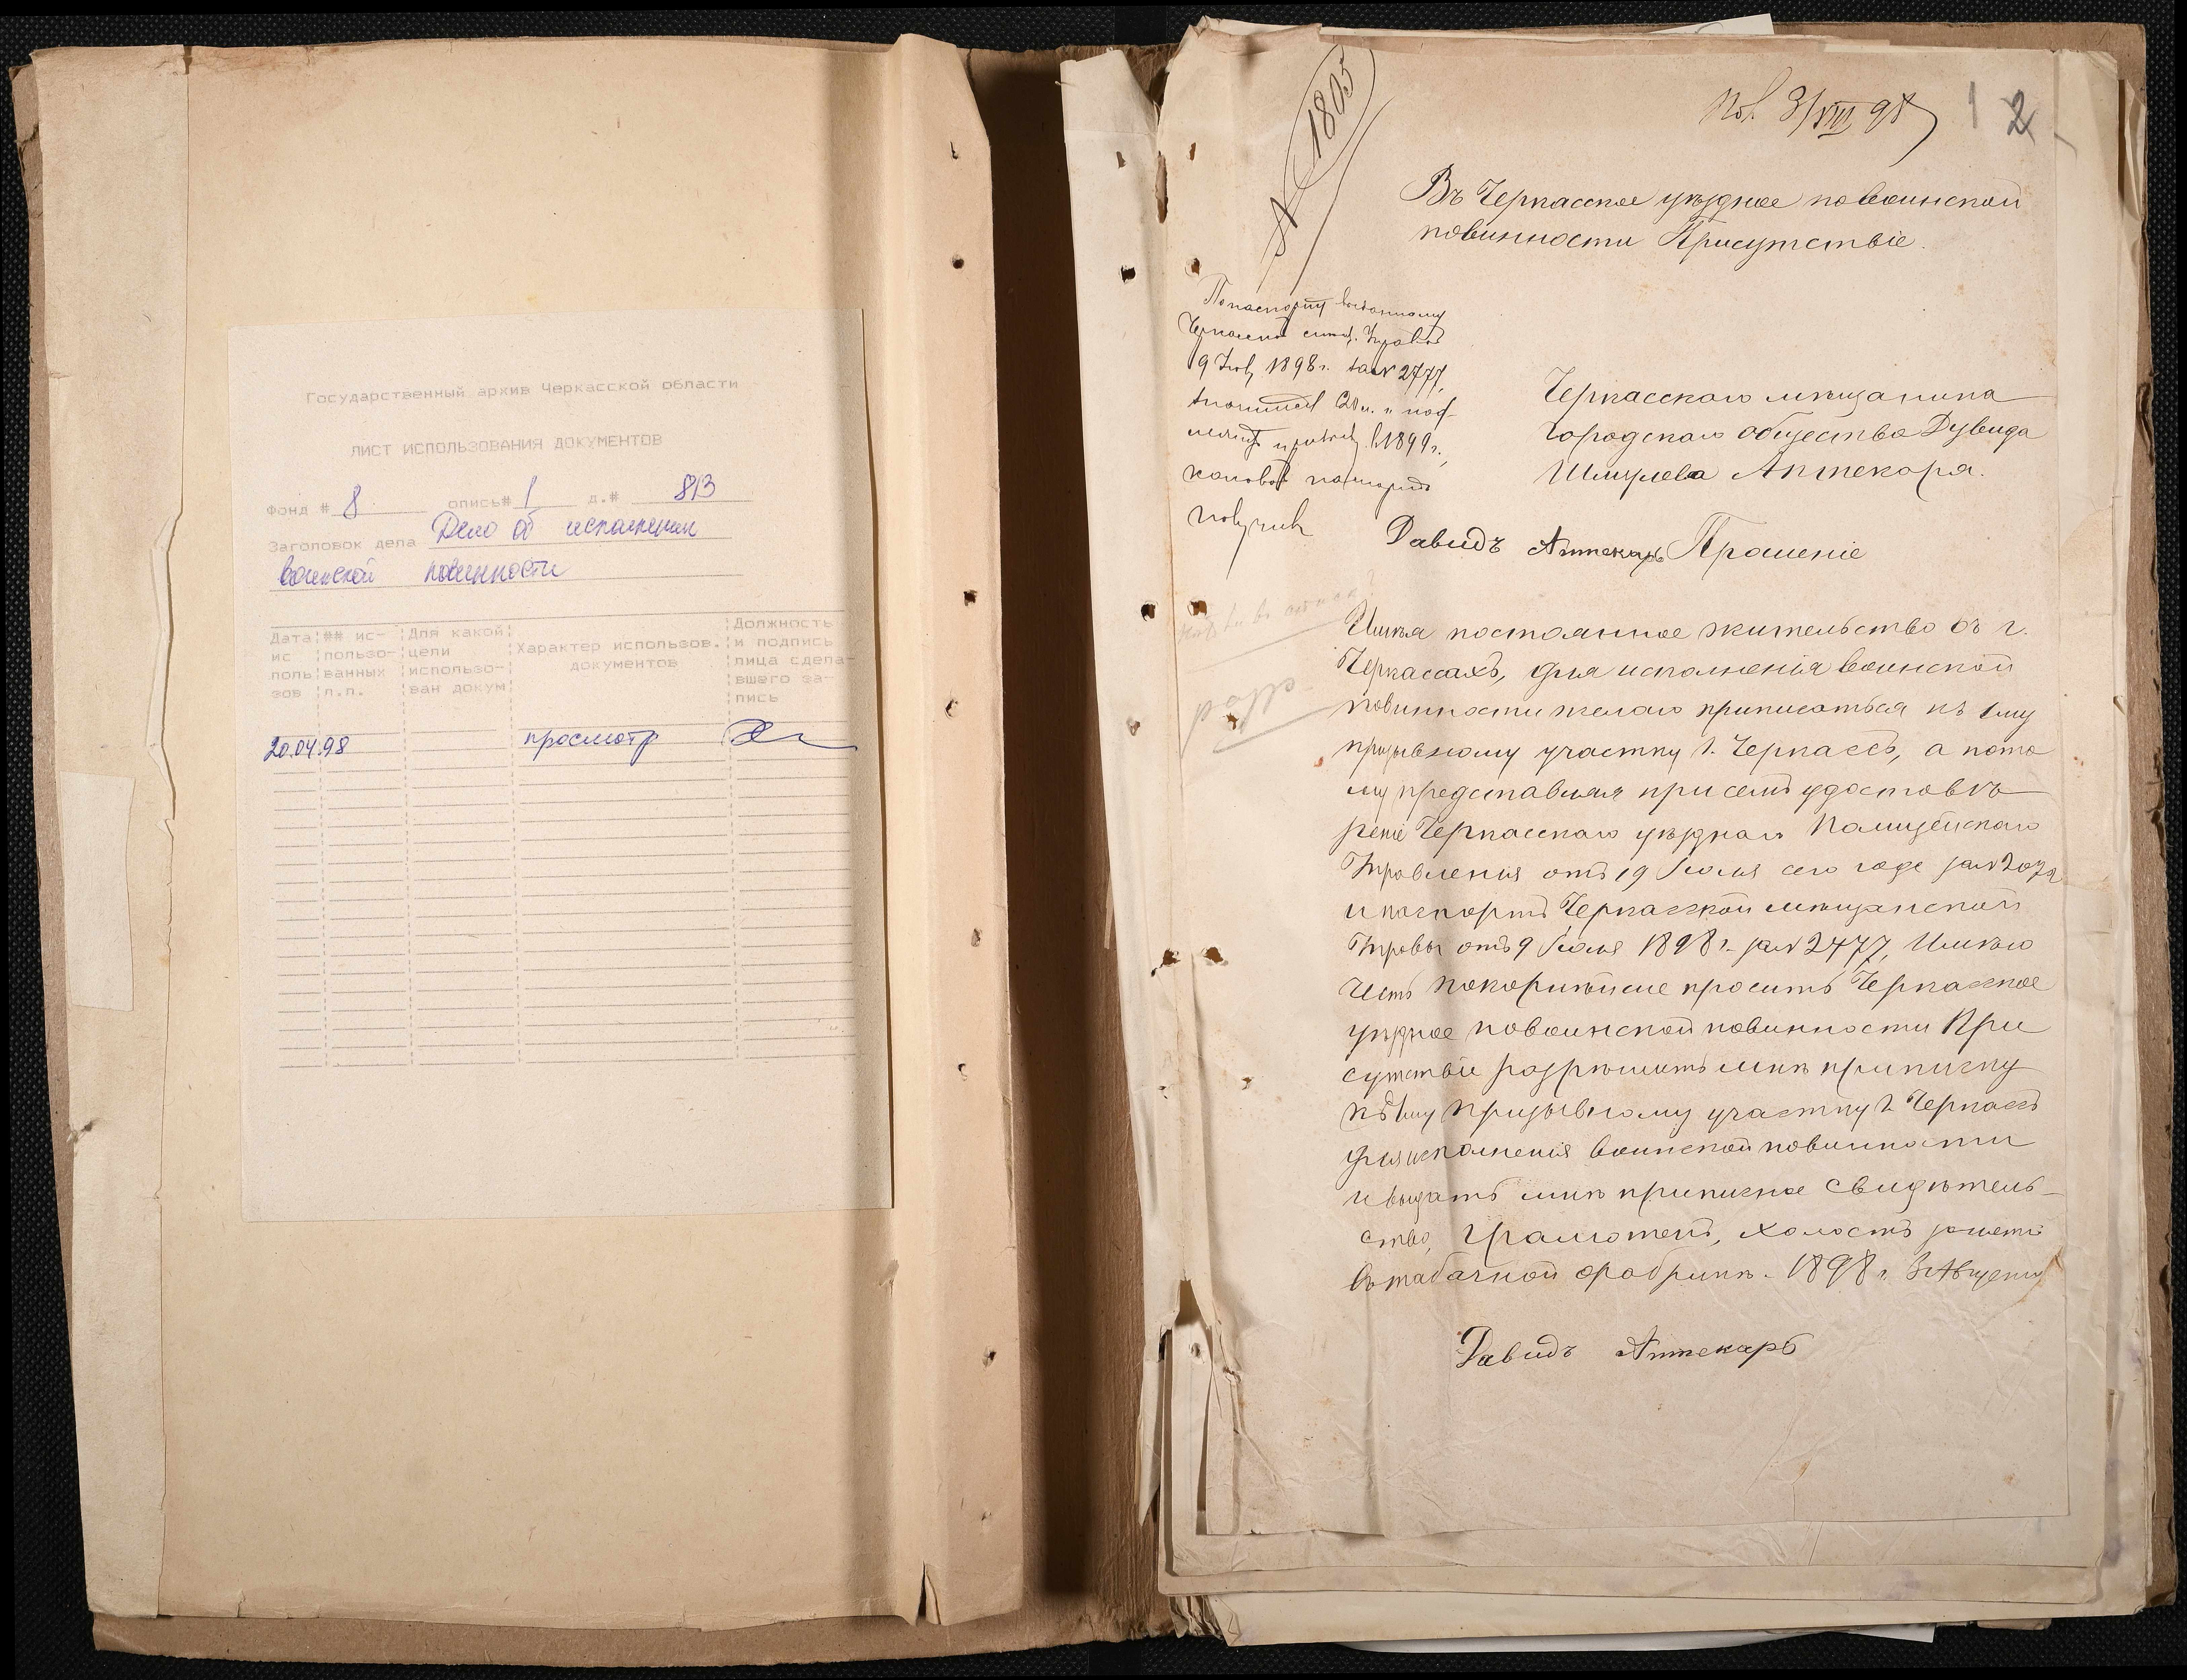 Государственный архив Черкасской области
ЛИСТ ИСПОЛЬЗОВАНИЯ ДОКУМЕНТОВ
Фонд # 8 опись # 1 д.# 813
Заголовок дела Дело об исполнении
воинской повинности
Дата ис поль зов
## ис- пользо- ванных л.п.
Для какой цели использо- ван докум
Характер использов. документов
Должность и подпись лица сдела- вшего за- пись
20.04.98 просмотр
Пол. 3/VIII 98 1 2
№ 1805
Въ Черкасское уѣздное по воинской
повинности Присутствіе.
По паспорту выданному
9 Іюл 1898 г. за № 2477,
1899 г.,
каковой паспортъ
получилъ
Черкасского мѣщанина
городского общества Дувида
Шмулева Аптекаря.
Давидъ Аптекарь Прошеніе
Имѣя постоянное жительство въ г.
Черкассахъ, для исполненія воинской
повинности желаю приписаться къ 1му
призывному участку г. Черкассъ, а пото
му представляя при семъ удостовѣ
реніе Черкасскаго уѣзднаго Полицейскаго
Управленія отъ 19 Іюля сего года за №
и паспортъ Черкасской мѣщанской
Управы отъ 9 Іюля 1898 г. за № 2477, Имѣю
честь покорнѣйше просить Черкасское
уѣздное по воинской повинности При
сутствіе разрѣшить мнѣ приписку
къ 1му призывному участку г. Черкассъ
для исполненія воинской повинности
и выдать мнѣ приписное свидѣтель-
ство, Грамотенъ, холостъ
въ табачной фабрикѣ. 1898 г. 3 Августа
Давидъ Аптекарь